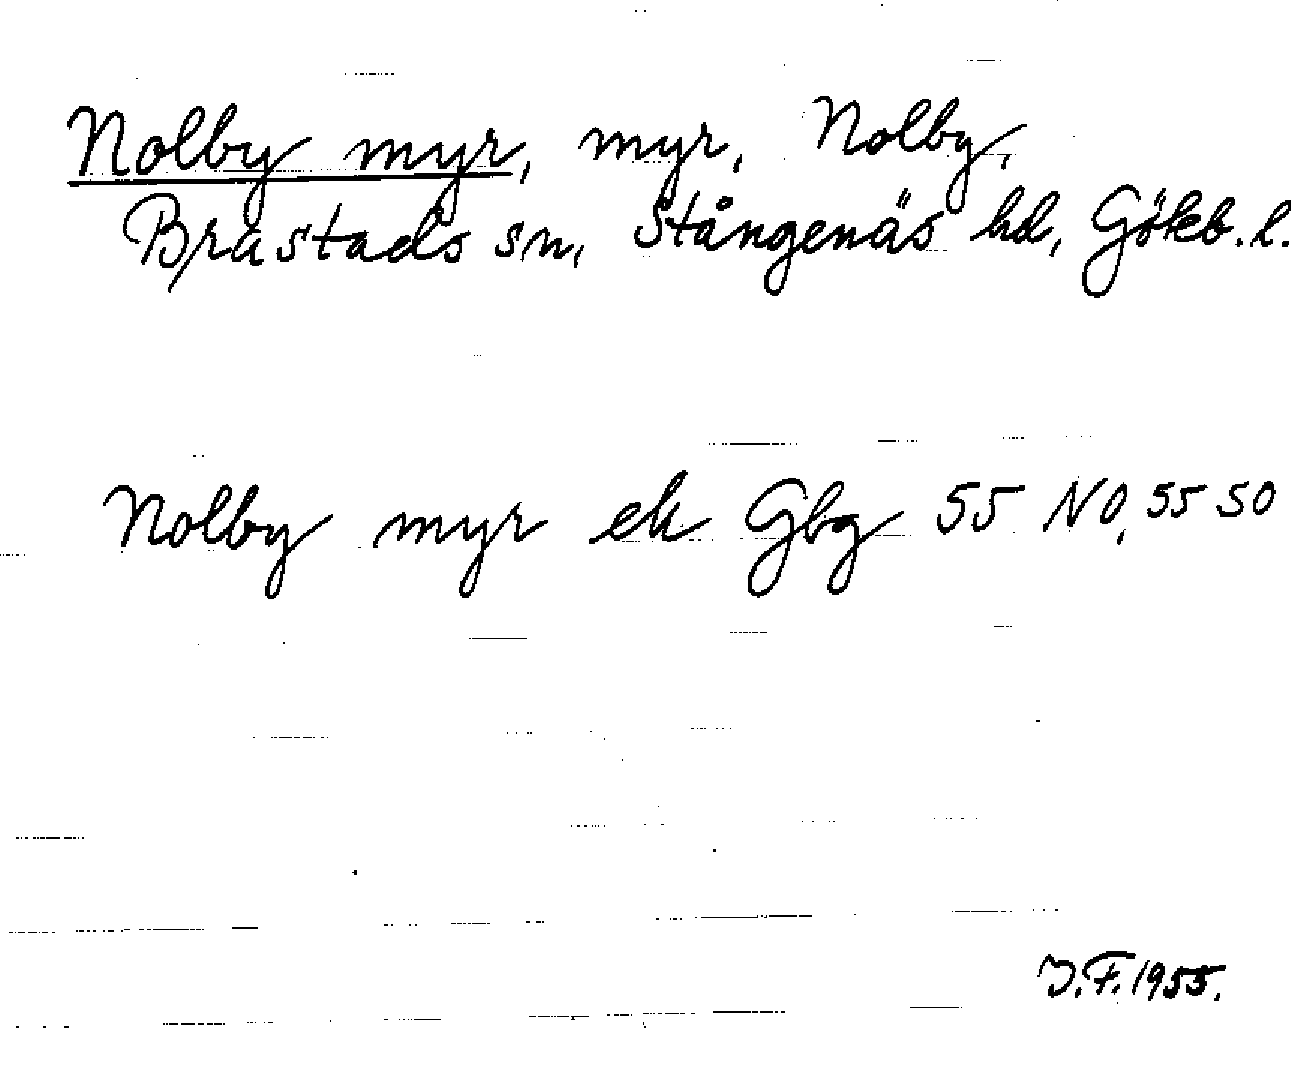 Nolby myr, myr, Nolby,
Brastads sn, Stångenäs hd, Gökb. l.
Nolby myr ek Gbg 55 NO, 55 SO
J.F. 1955.